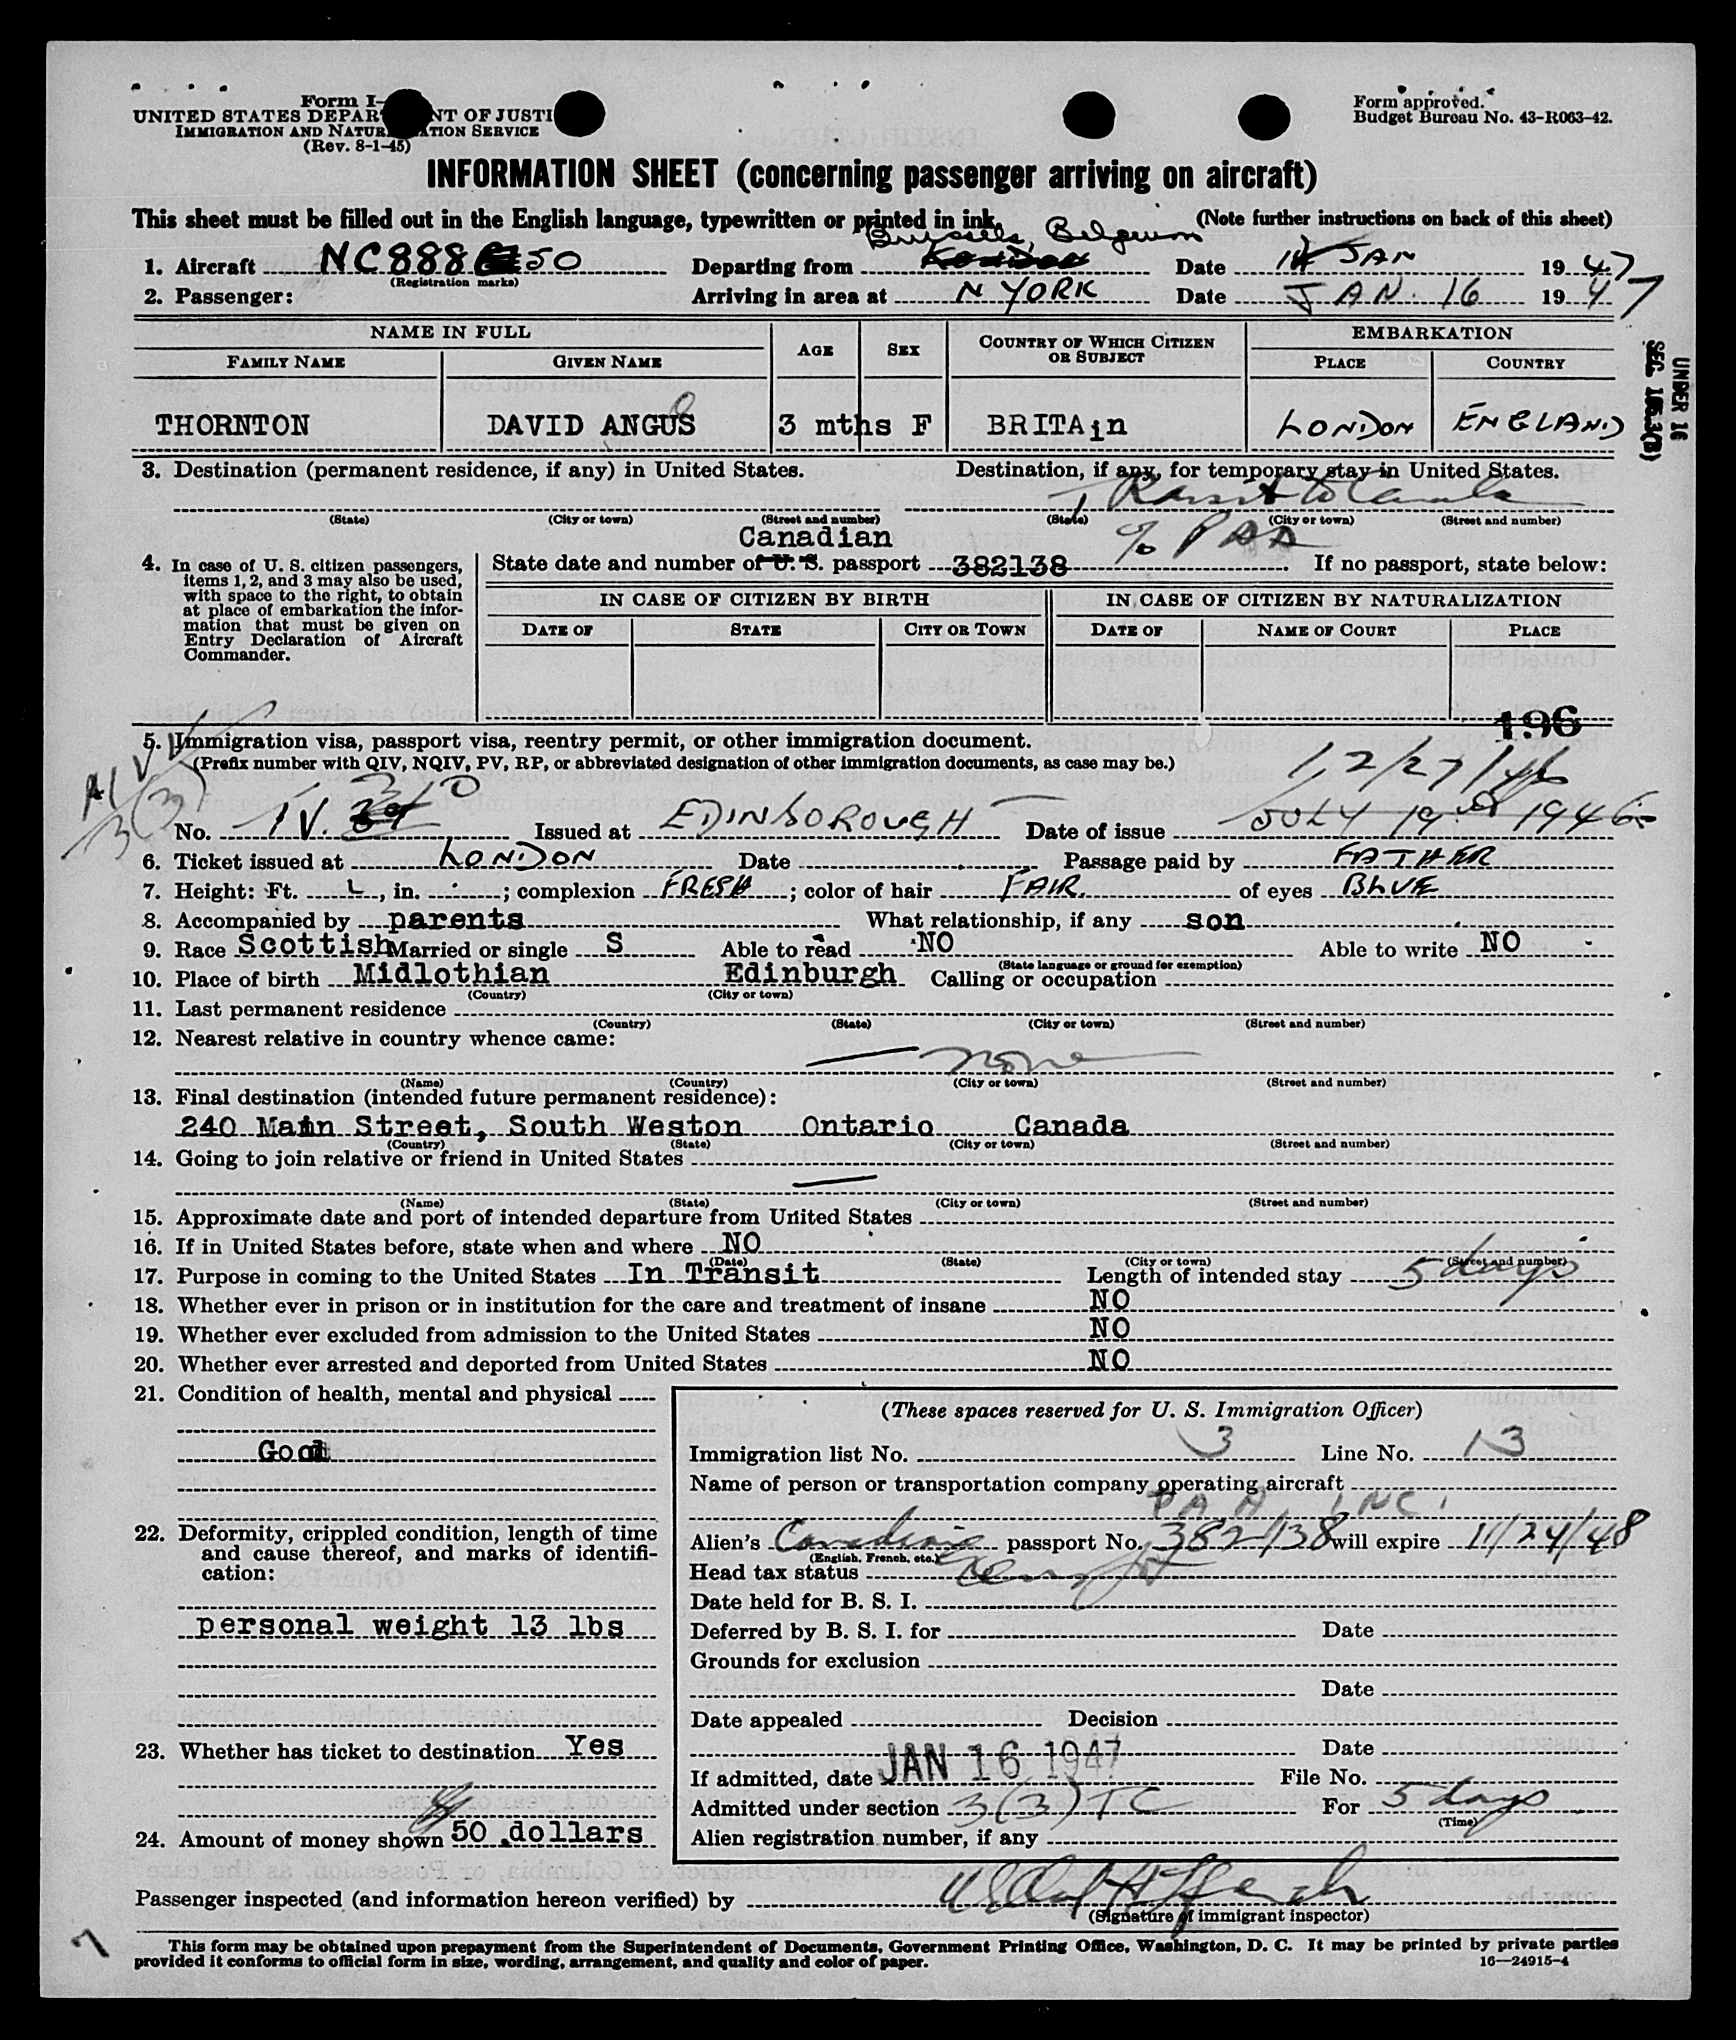 Form I-
UNITED STATES DEPAR NT OF JUSTI
IMMIGRATION AND NATUR ATION SERVICE
(Rev. 8-1-45)
Form approved.
Budget Bureau No. 43-R063-42.
INFORMATION SHEET (concerning passenger arriving on aircraft)
This sheet must be filled out in the English language, typewritten or printed in ink. (Note further instructions on back of this sheet)
Brussels, Belgium
1. Aircraft NC888 50 Departing from London Date 14 JAN 1947
(Registration marks)
2. Passenger: Arriving in area at N YORK Date JAN. 16 1947
NAME IN FULL AGE SEX COUNTRY OF WHICH CITIZEN OR SUBJECT EMBARKATION
FAMILY NAME GIVEN NAME PLACE COUNTRY
UNDER 16
THORNTON DAVID ANGUS 3 mths F BRITAin LONDON ENGLAND
3. Destination (permanent residence, if any) in United States. Destination, if any, for temporary stay in United States.
Transit to Canada
(State) (City or town) (Street and number) (State) (City or town) (Street and number)
Canadian c/o PAA
4. In case of U. S. citizen passengers, items 1, 2, and 3 may also be used, with space to the right, to obtain at place of embarkation the information that must be given on Entry Declaration of Aircraft Commander.
State date and number of U. S. passport 382138 If no passport, state below:
IN CASE OF CITIZEN BY BIRTH IN CASE OF CITIZEN BY NATURALIZATION
DATE OF STATE CITY OR TOWN DATE OF NAME OF COURT PLACE
196
5. Immigration visa, passport visa, reentry permit, or other immigration document.
(Prefix number with QIV, NQIV, PV, RP, or abbreviated designation of other immigration documents, as case may be.)
12/27/46
No. TV. 310 Issued at EDINBOROUGH Date of issue JULY 19th 1946
6. Ticket issued at LONDON Date Passage paid by FATHER
7. Height: Ft. , in. ; complexion FRESH ; color of hair FAIR. of eyes BLUE
8. Accompanied by parents What relationship, if any son
9. Race Scottish Married or single S Able to read NO Able to write NO
(State language or ground for exemption)
10. Place of birth Midlothian Edinburgh Calling or occupation
(Country) (City or town)
11. Last permanent residence
(Country) (State) (City or town) (Street and number)
12. Nearest relative in country whence came:
none
(Name) (Country) (City or town) (Street and number)
13. Final destination (intended future permanent residence):
240 Main Street, South Weston Ontario Canada
(Country) (State) (City or town) (Street and number)
14. Going to join relative or friend in United States
(Name) (State) (City or town) (Street and number)
15. Approximate date and port of intended departure from United States
16. If in United States before, state when and where NO
(Date) (State) (City or town) (Street and number)
17. Purpose in coming to the United States In Transit Length of intended stay 5 days
18. Whether ever in prison or in institution for the care and treatment of insane NO
19. Whether ever excluded from admission to the United States NO
20. Whether ever arrested and deported from United States NO
21. Condition of health, mental and physical
Good
22. Deformity, crippled condition, length of time and cause thereof, and marks of identification:
personal weight 13 lbs
23. Whether has ticket to destination Yes
24. Amount of money shown 50 dollars
(These spaces reserved for U. S. Immigration Officer)
Immigration list No. 3 Line No. 13
Name of person or transportation company operating aircraft
P A A, INC.
Alien's Canadian passport No. 382138 will expire 11/24/48
(English, French, etc.)
Head tax status exempt
Date held for B. S. I.
Deferred by B. S. I. for Date
Grounds for exclusion
Date
Date appealed Decision
Date
If admitted, date JAN 16 1947 File No.
Admitted under section 3(3) TC For 5 days
(Time)
Alien registration number, if any
Passenger inspected (and information hereon verified) by
(Signature of immigrant inspector)
7
This form may be obtained upon prepayment from the Superintendent of Documents, Government Printing Office, Washington, D. C. It may be printed by private parties
provided it conforms to official form in size, wording, arrangement, and quality and color of paper. 16—24915-4